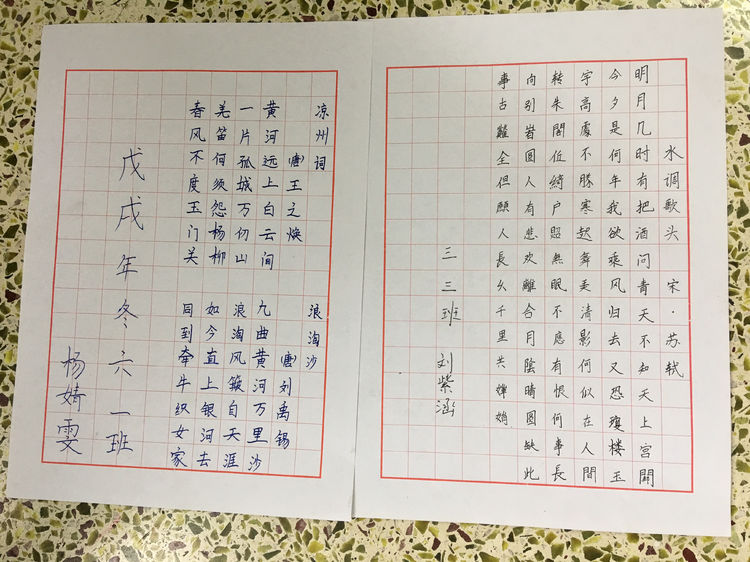 水调歌头 宋·苏轼
明月几时有把酒问青天不知天上宫闕
今夕是何年我欲乘风归去又恐瓊楼玉
宇高處不勝寒起舞弄清影何似在人間
转朱閣低綺户照無眠不應有恨何事長
向别峕圓人有悲欢離合月陰晴圓缺此
事古難全但願人長久千里共婵娟
三三班 刘紫涵
凉州词
(唐)王之焕
黄河远上白云间
一片孤城万仞山
羌笛何须怨杨柳
春风不度玉门关
浪淘沙
(唐)刘禹锡
九曲黄河万里沙
浪淘风簸自天涯
如今直上银河去
同到牵牛织女家
戊戌年冬六一班
杨婧雯